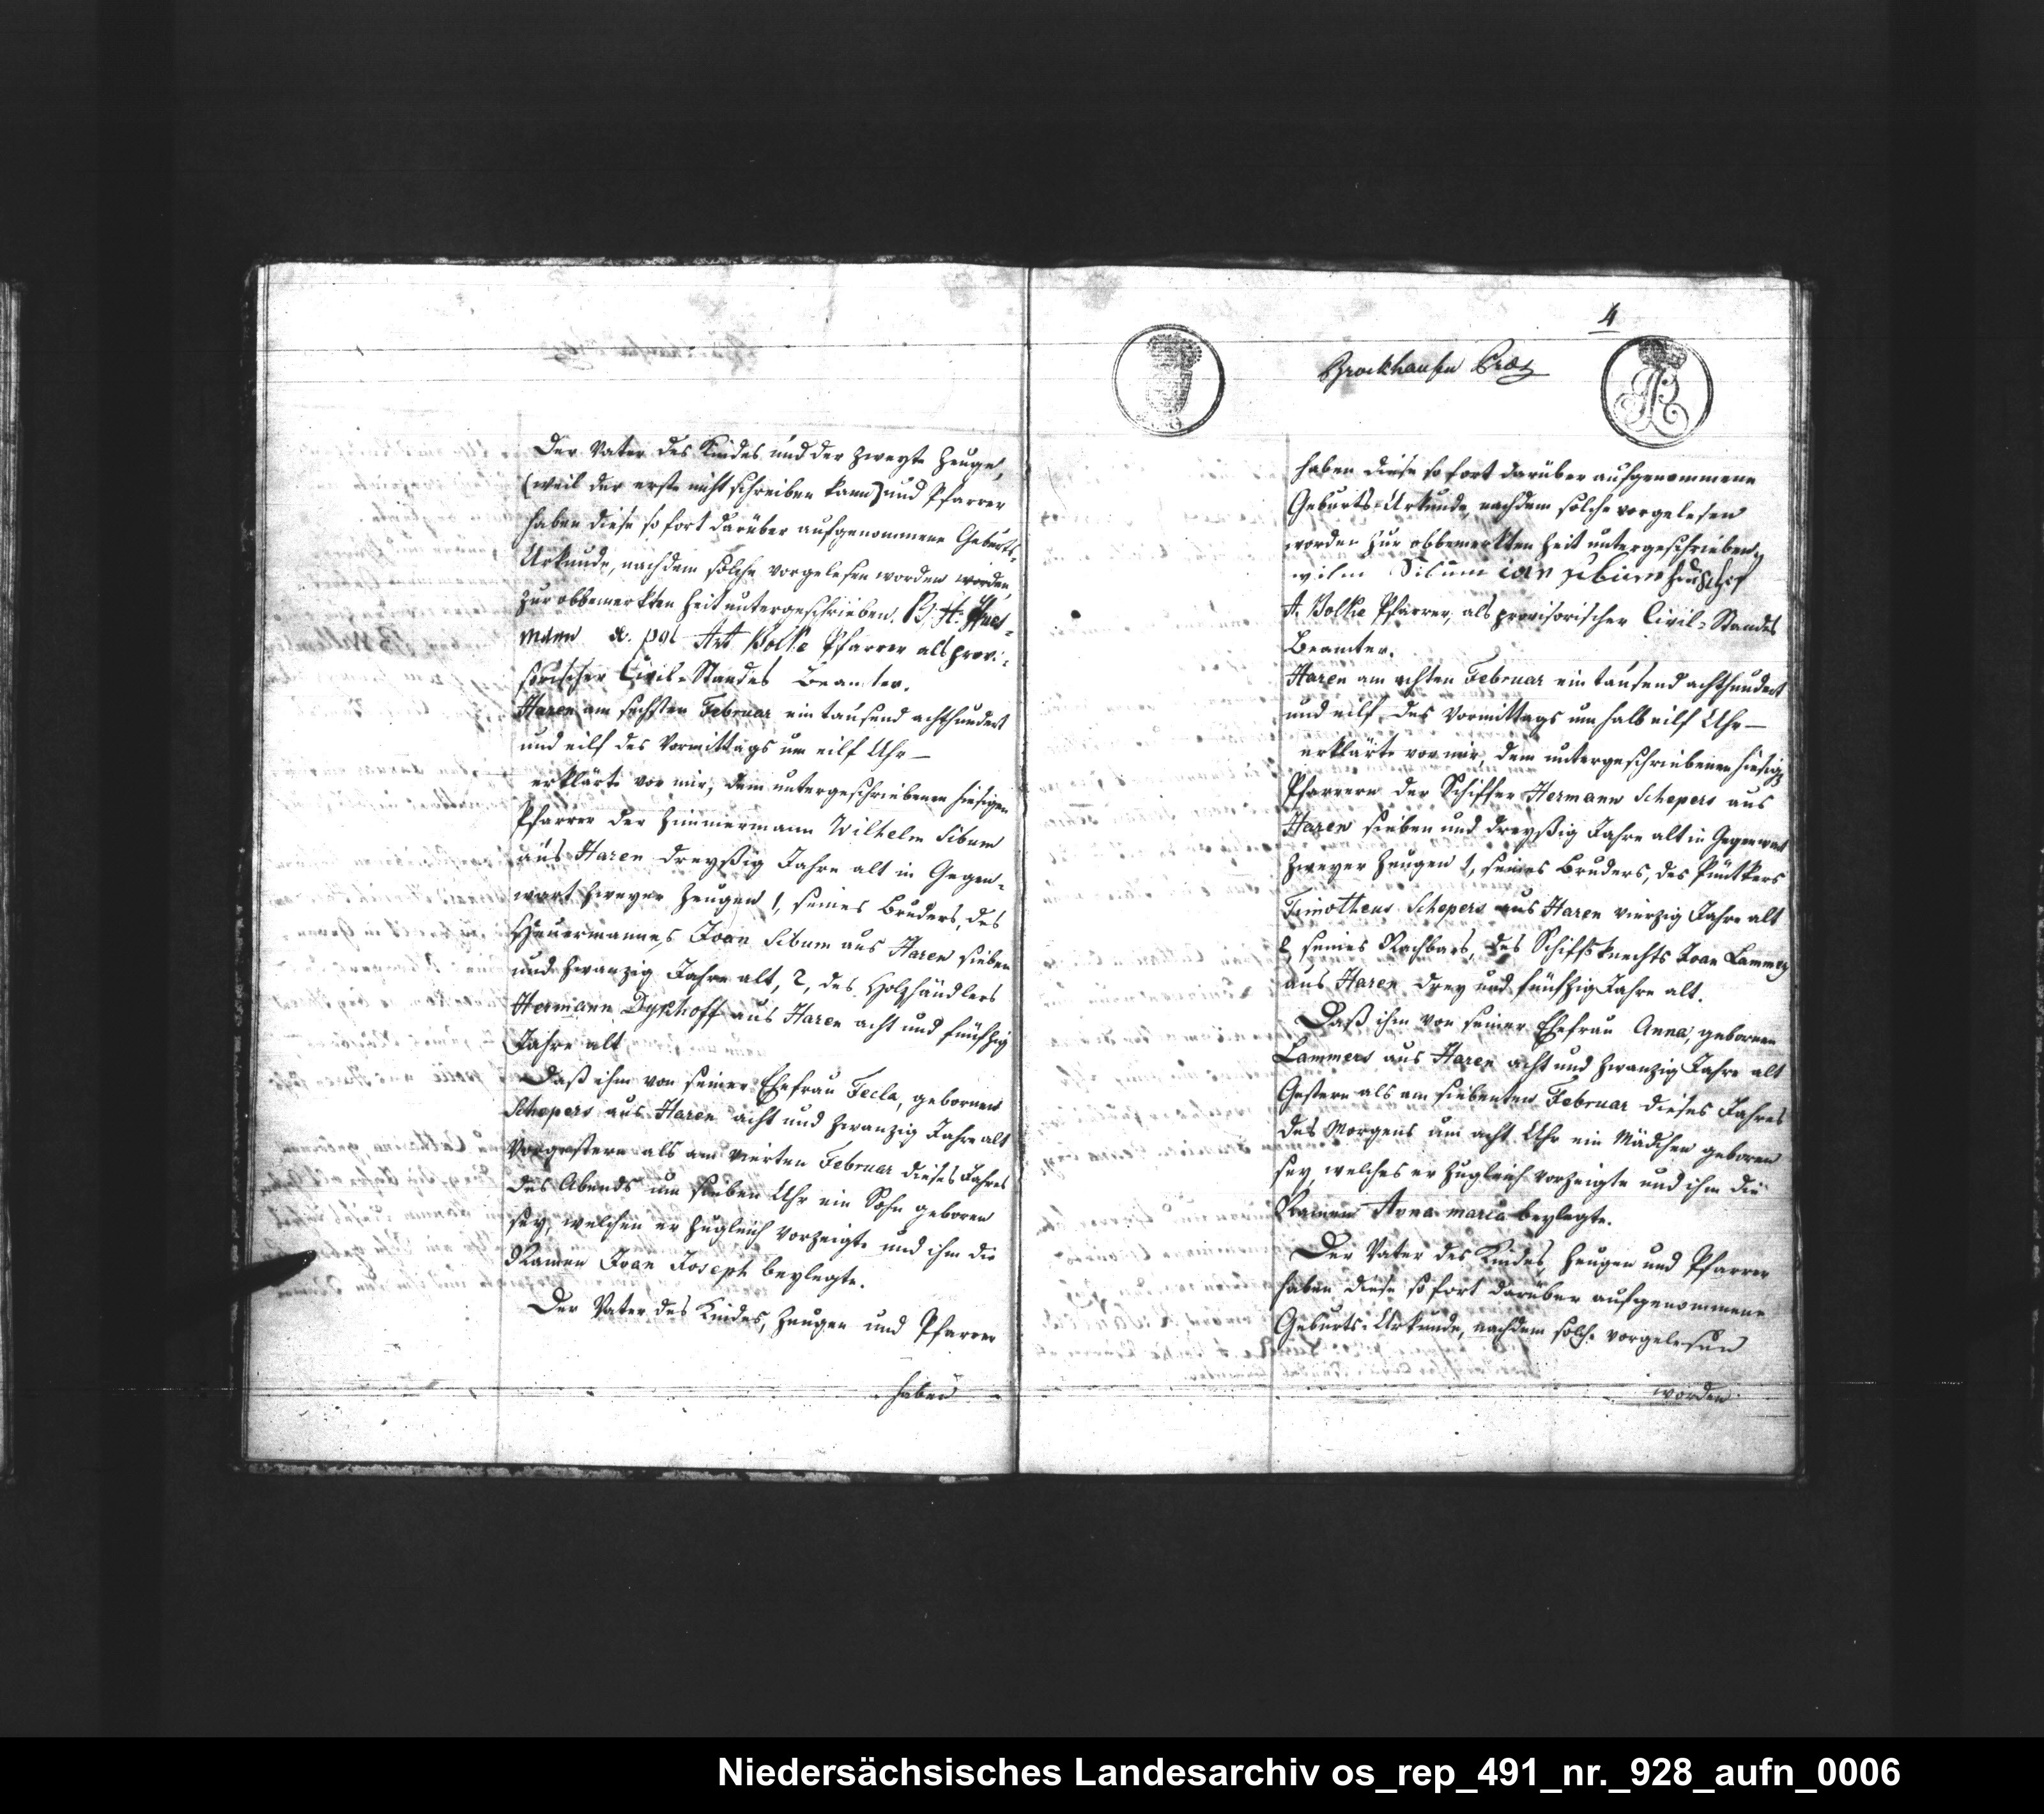 Der Vater des Kindes und der zweyte Zeuge,
(weil der erste nicht schreiben kann) und Pfarrer
haben diese so fort darüber aufgenommene Geburts-
Urkunde, nachdem solche vorgelesen worden worden,
zur obbemerkten Zeit untergeschrieben. B. H.
mann Ant Bolke Pfarrer als provi-
sorischer Civil-Standes Beamter.
Haren am sechsten Februar ein tausend achthundert
und eilf des Vormittags um eilf Uhr —
erklärte vor mir, dem untergeschriebenen hiesigen
Pfarrer der Zimmermann Wilhelm Sibum
aus Haren dreyßig Jahre alt in Gegen-
wart zweyer Zeugen 1, seines Bruders, des
Heuermannes Joan Sibum aus Haren sieben
und zwanzig Jahre alt, 2, des Holzhändlers
Hermann Dyckhoff aus Haren acht und fünfzig
Jahre alt
Daß ihm von seiner Ehefrau Tecla, gebornen
Schepers aus Haren acht und zwanzig Jahre alt
Vorgestern als am vierten Februar dieses Jahres
des Abends um sieben Uhr ein Sohn geboren
sey, welchen er zugleich vorzeigte und ihm die
Namen Joan Joseph beylegte.
Der Vater des Kindes, Zeugen und Pfarrer
haben
4
Brockhausen
haben diese so fort darüber aufgenommene
Geburts-Urkunde, nachdem solche vorgelesen
worden zur obbemerkten Zeit untergeschrieben,
wilm Sibum ian sibum
A. Bolke Pfarrer, als provisorischer Civil-Standes
Beamter.
Haren am achten Februar ein tausend achthundert
und eilf, des Vormittags um halb eilf Uhr —
erklärte vor mir, dem untergeschriebenen hiesig
Pfarrern der Schiffer Hermann Schepers aus
Haren sieben und dreyßig Jahre alt in Gegenwart
zweyer Zeugen 1, seines Bruders, des Püntkers
Timotheus Schepers aus Haren vierzig Jahre alt
2, seines Nachbars, des Schiffsknechts Joan Lammers
aus Haren drey und fünfzig Jahre alt.
Daß ihm von seiner Ehefrau Anna, gebornen
Lammers aus Haren acht und zwanzig Jahre alt
Gestern als am siebenten Februar dieses Jahres
des Morgens um acht Uhr ein Mädchen geboren
sey, welches er zugleich vorzeigte und ihm die
Namen Anna maria beylegte.
Der Vater des Kindes, Zeugen und Pfarrer
haben diese so fort darüber aufgenommene
Geburts-Urkunde, nachdem solche vorgelesen
worden
Niedersächsisches Landesarchiv os_rep_491_nr._928_aufn_0006